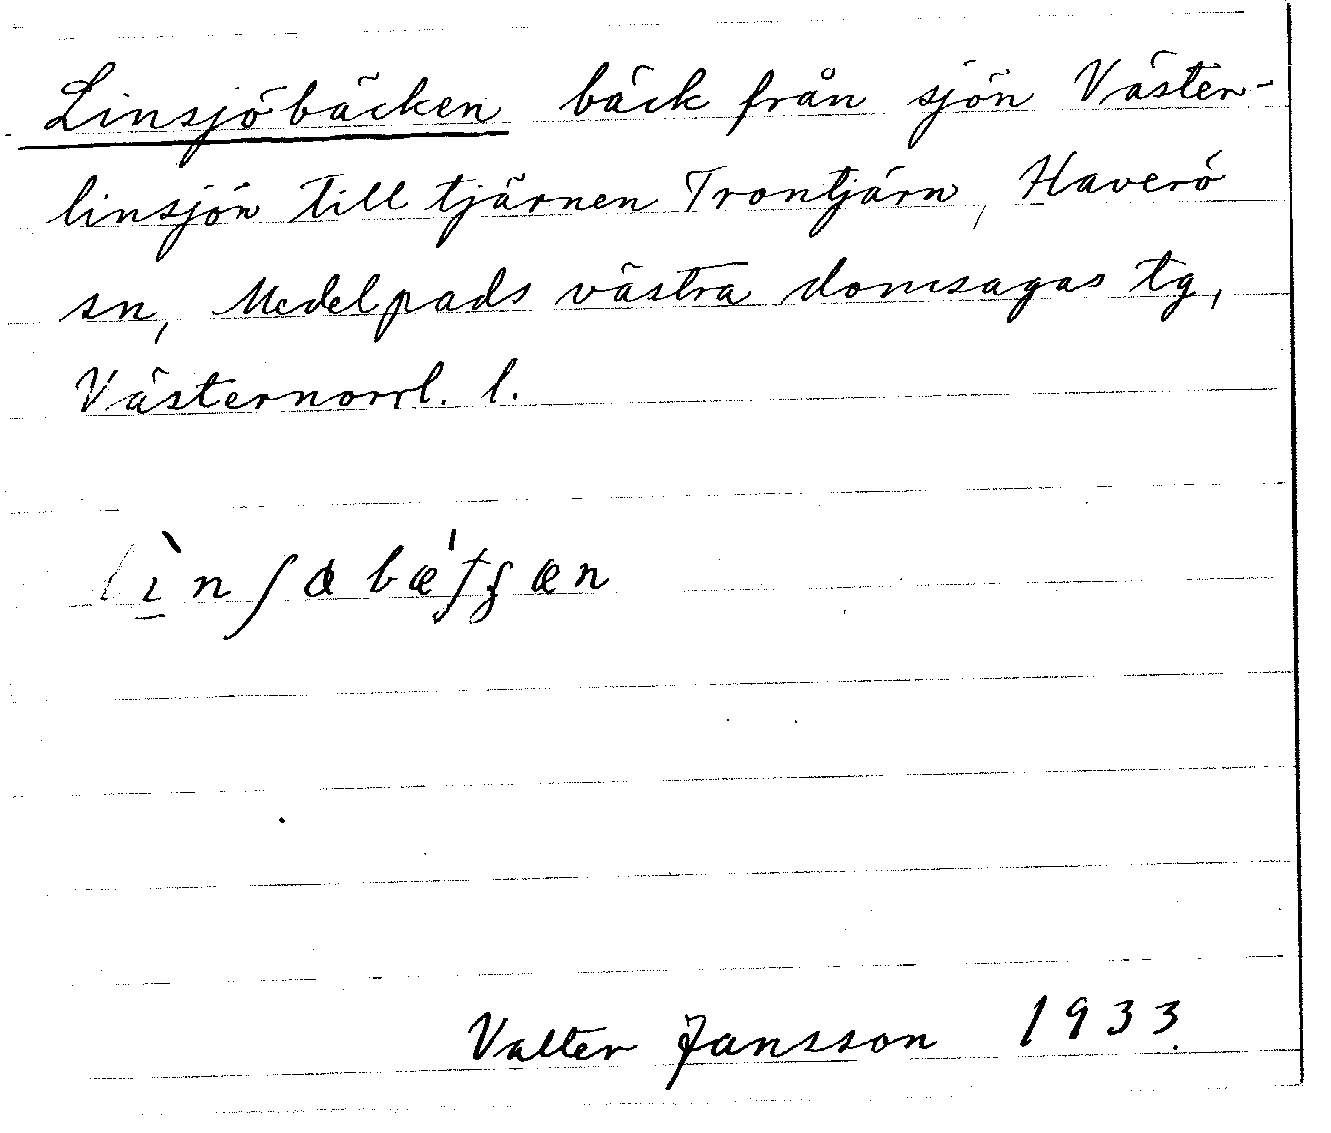 Linsjöbäcken bäck från sjön Väster-
linsjön till tjärnen Trontjärn, Haverö
sn, Medelpads västra domsagas tg,
Västernorrl. l.
Valter Jansson 1933.